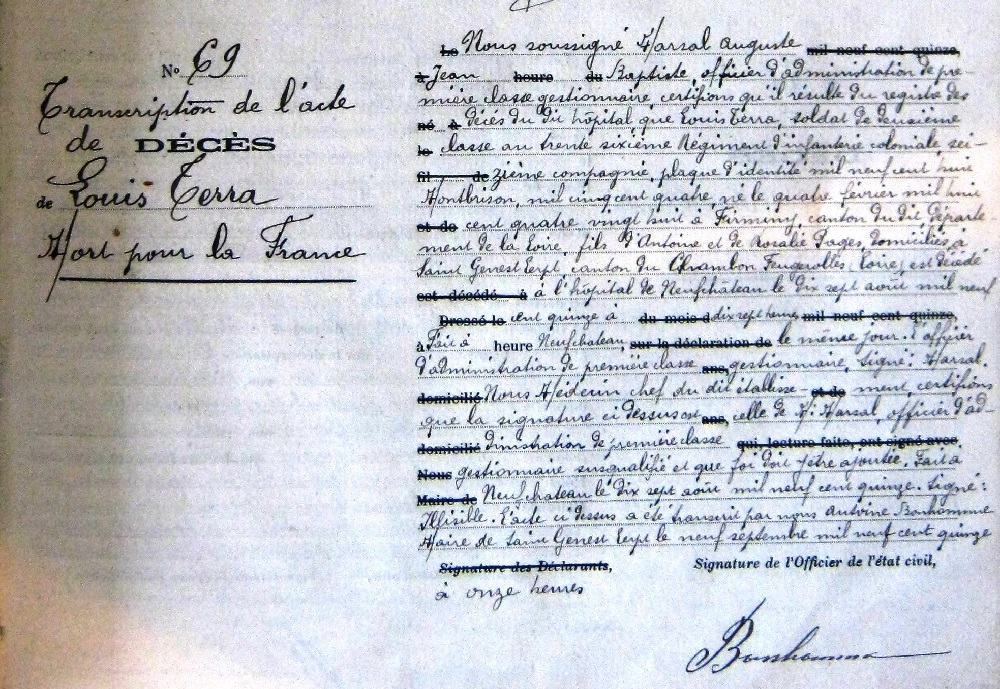 No 69
Transcription de l'acte
de DÉCÈS
de Louis Terra
Mort pour la France
Le Nous soussigné Marsal auguste mil neuf cent quinze,
à Jean heure du Baptiste, officier d'administration de pre
mière classe gestionnaire, certifions qu'il résulte du registre des
né à décès du dit hôpital que Louis Terra, soldat de deuxième
le classe au trente sixième Régiment d'infanterie coloniale sei-
fil de zième compagnie, plaque d'identité mil neuf cent huit
Montbrison, mil cinq cent quatre, né le quatre février mil huit
et de cent quatre vingt huit à Firminy canton du dit Départe
ment de la Loire, fils d'Antoine et de Rosalie Pages, domiciliés à
Saint Genest Lerpt, canton du Chambon Feugerolles (Loire) est décédé
est décédé à à l'hôpital de Neufchâteau le dix sept août mil neuf
Dressé le cent quinze à du mois d dix sept heures mil neuf cent quinze,
à Fait à heure Neufchateau, sur la déclaration de le même jour. L'officier
d'administration de première classe ans, gestionnaire, signé: Marsal.
domicilié Nous Médecin chef du dit établisse- et de ment certifions
que la signature ci dessus est ans, celle de M. Marsal, officier d'ad-
domicilié dministration de première classe qui, lecture faite, ont signé avec
Nous gestionnaire susqualifié et que foi doit y être ajoutée. Fait à
Maire de Neufchateau le dix sept août mil neuf cent quinze. Signé:
Illisible. L'acte ci dessus a été transcrit par nous Antoine Bonhomme
Maire de Saint Genest Lerpt le neuf septembre mil neuf cent quinze
Signature des Déclarants, Signature de l'Officier de l'état civil,
à onze heures
Bonhomme